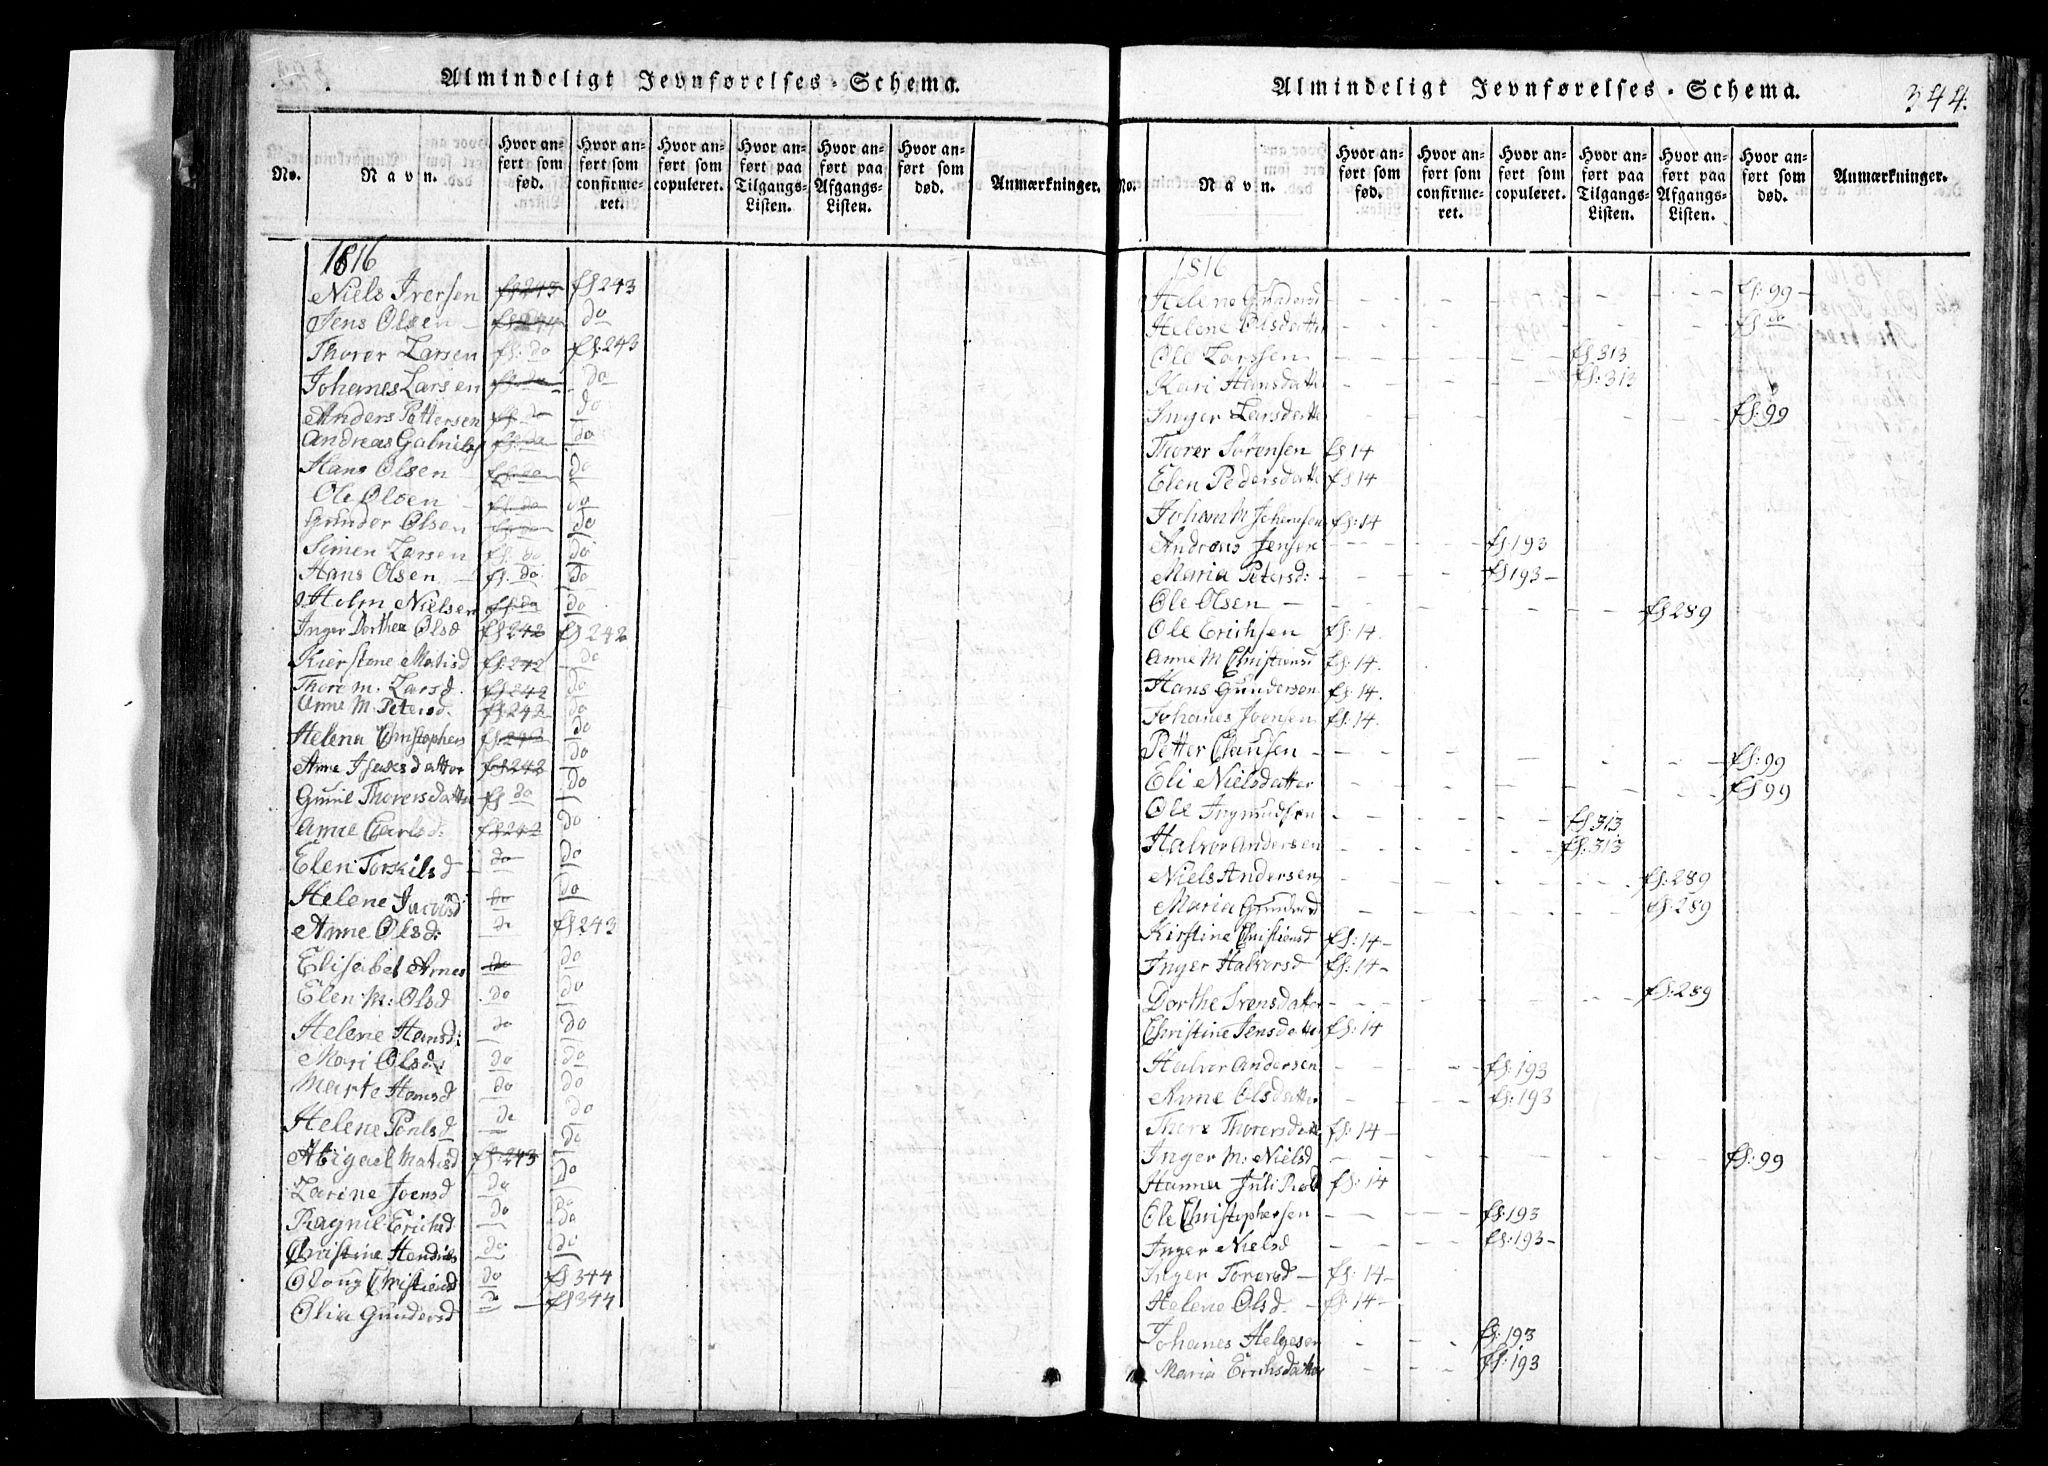 Almindeligt Jevnførelses-Schema.
No.
Navn.
Hvor an-
ført som
fød.
Hvor an-
ført som
confirme-
ret.
Hvor an-
ført som
copuleret.
Hvor an-
ført paa
Tilgangs-
Listen.
Hvor an-
ført paa
Afgangs-
Listen.
Hvor an-
ført som
død.
Anmærkninger.
1816
Niels Iversen fS 243 fS 243
Jens Olsen fS 244 do
Thorer Larsen fS. do fS. 243
Johanes Larsen fS. do do
Anders Pettersen fS. do do
Andreas Gabriels fS. do do
Hans Olsen fS. do do
Ole Olsen fS. do do
Gunder Olsen fS. do do
Simen Larsen fS. do do
Hans Olsen fS. do do
Holm Nielsen fS. do do
Inger Dorthea Olsd fS 242 fS 242
Kierstene Matisd fS. 242 do
Thore M. Larsd. fS 242 do
Anne M. Petersd. fS. 242 do
Helena Christophers fS. 242 do
Anne Isaksdatter fS 242 do
Gunil Thorersdatter fS do do
Anne Carlsd: fS 242 do
Elen Torkilsd do do
Helene Jacobsd do do
Anne Olsd: do fS 243
Elisabet Arnes do do
Elen M: Olsd do do
Helene Hansd: do do
Mari Olsd: do do
Marte Hansd do do
Helene Povlsd do do
Abigael Matisd fS. 243 do
Larine Joensd do do
Ragnil Erichsd do do
Christine Hendrics do do
Oloug Christiensd do fS 344
Olia Gundersd do fS 344
Almindeligt Jevnførelses-Schema.
344.
No.
Navn.
Hvor an-
ført som
fød.
Hvor an-
ført som
confirme-
ret.
Hvor an-
ført som
copuleret.
Hvor an-
ført paa
Tilgangs-
Listen.
Hvor an-
ført paa
Afgangs-
Listen.
Hvor an-
ført som
død.
Anmærkninger.
1816
Helene Gundersd fS. 99
Helene Olsdatter fS do
Ole Larssen fS 313
Kari Hansdatte fS. 313
Inger Larsdatte fS. 99
Thorer Sörensen fS 14
Elen Pedersdatte fS 14
Johan M. Johansen fS: 14
Andreas Jensen fS. 193
Maria Petersd: fS 193
Ole Olsen fS 289
Ole Erichsen fS: 14.
Anne M Christiensd fS: 14.
Hans Gundersen fS: 14.
Johanes Joensen fS: 14.
Petter Clausen fS: 99
Eli Nielsdatter fS 99
Ole Ingmundsen fS 313
Halvor Andersen fS. 313
Niels Andersen fS: 289
Maria Gundersd fS: 289
Kirstine Christiensd fS: 14
Inger Halvorsd fS: 14
Dorthe Svensdatter fS: 289
Christine Jensdatter fS: 14
Halvor Andersen fS. 193
Anne Olsdatter fS: 193
Thore Thorersdatte fS: 14
Inger M: Nielsd fS: 99
Hanna Juli fS: 14
Ole Christophersen fS: 193
Inger Nielsd fS: 193
Inger Torersd fS: 14
Helene Olsd. fS: 14
Johanes Helgesen fS: 193
Maria Erichsdatter fS: 193